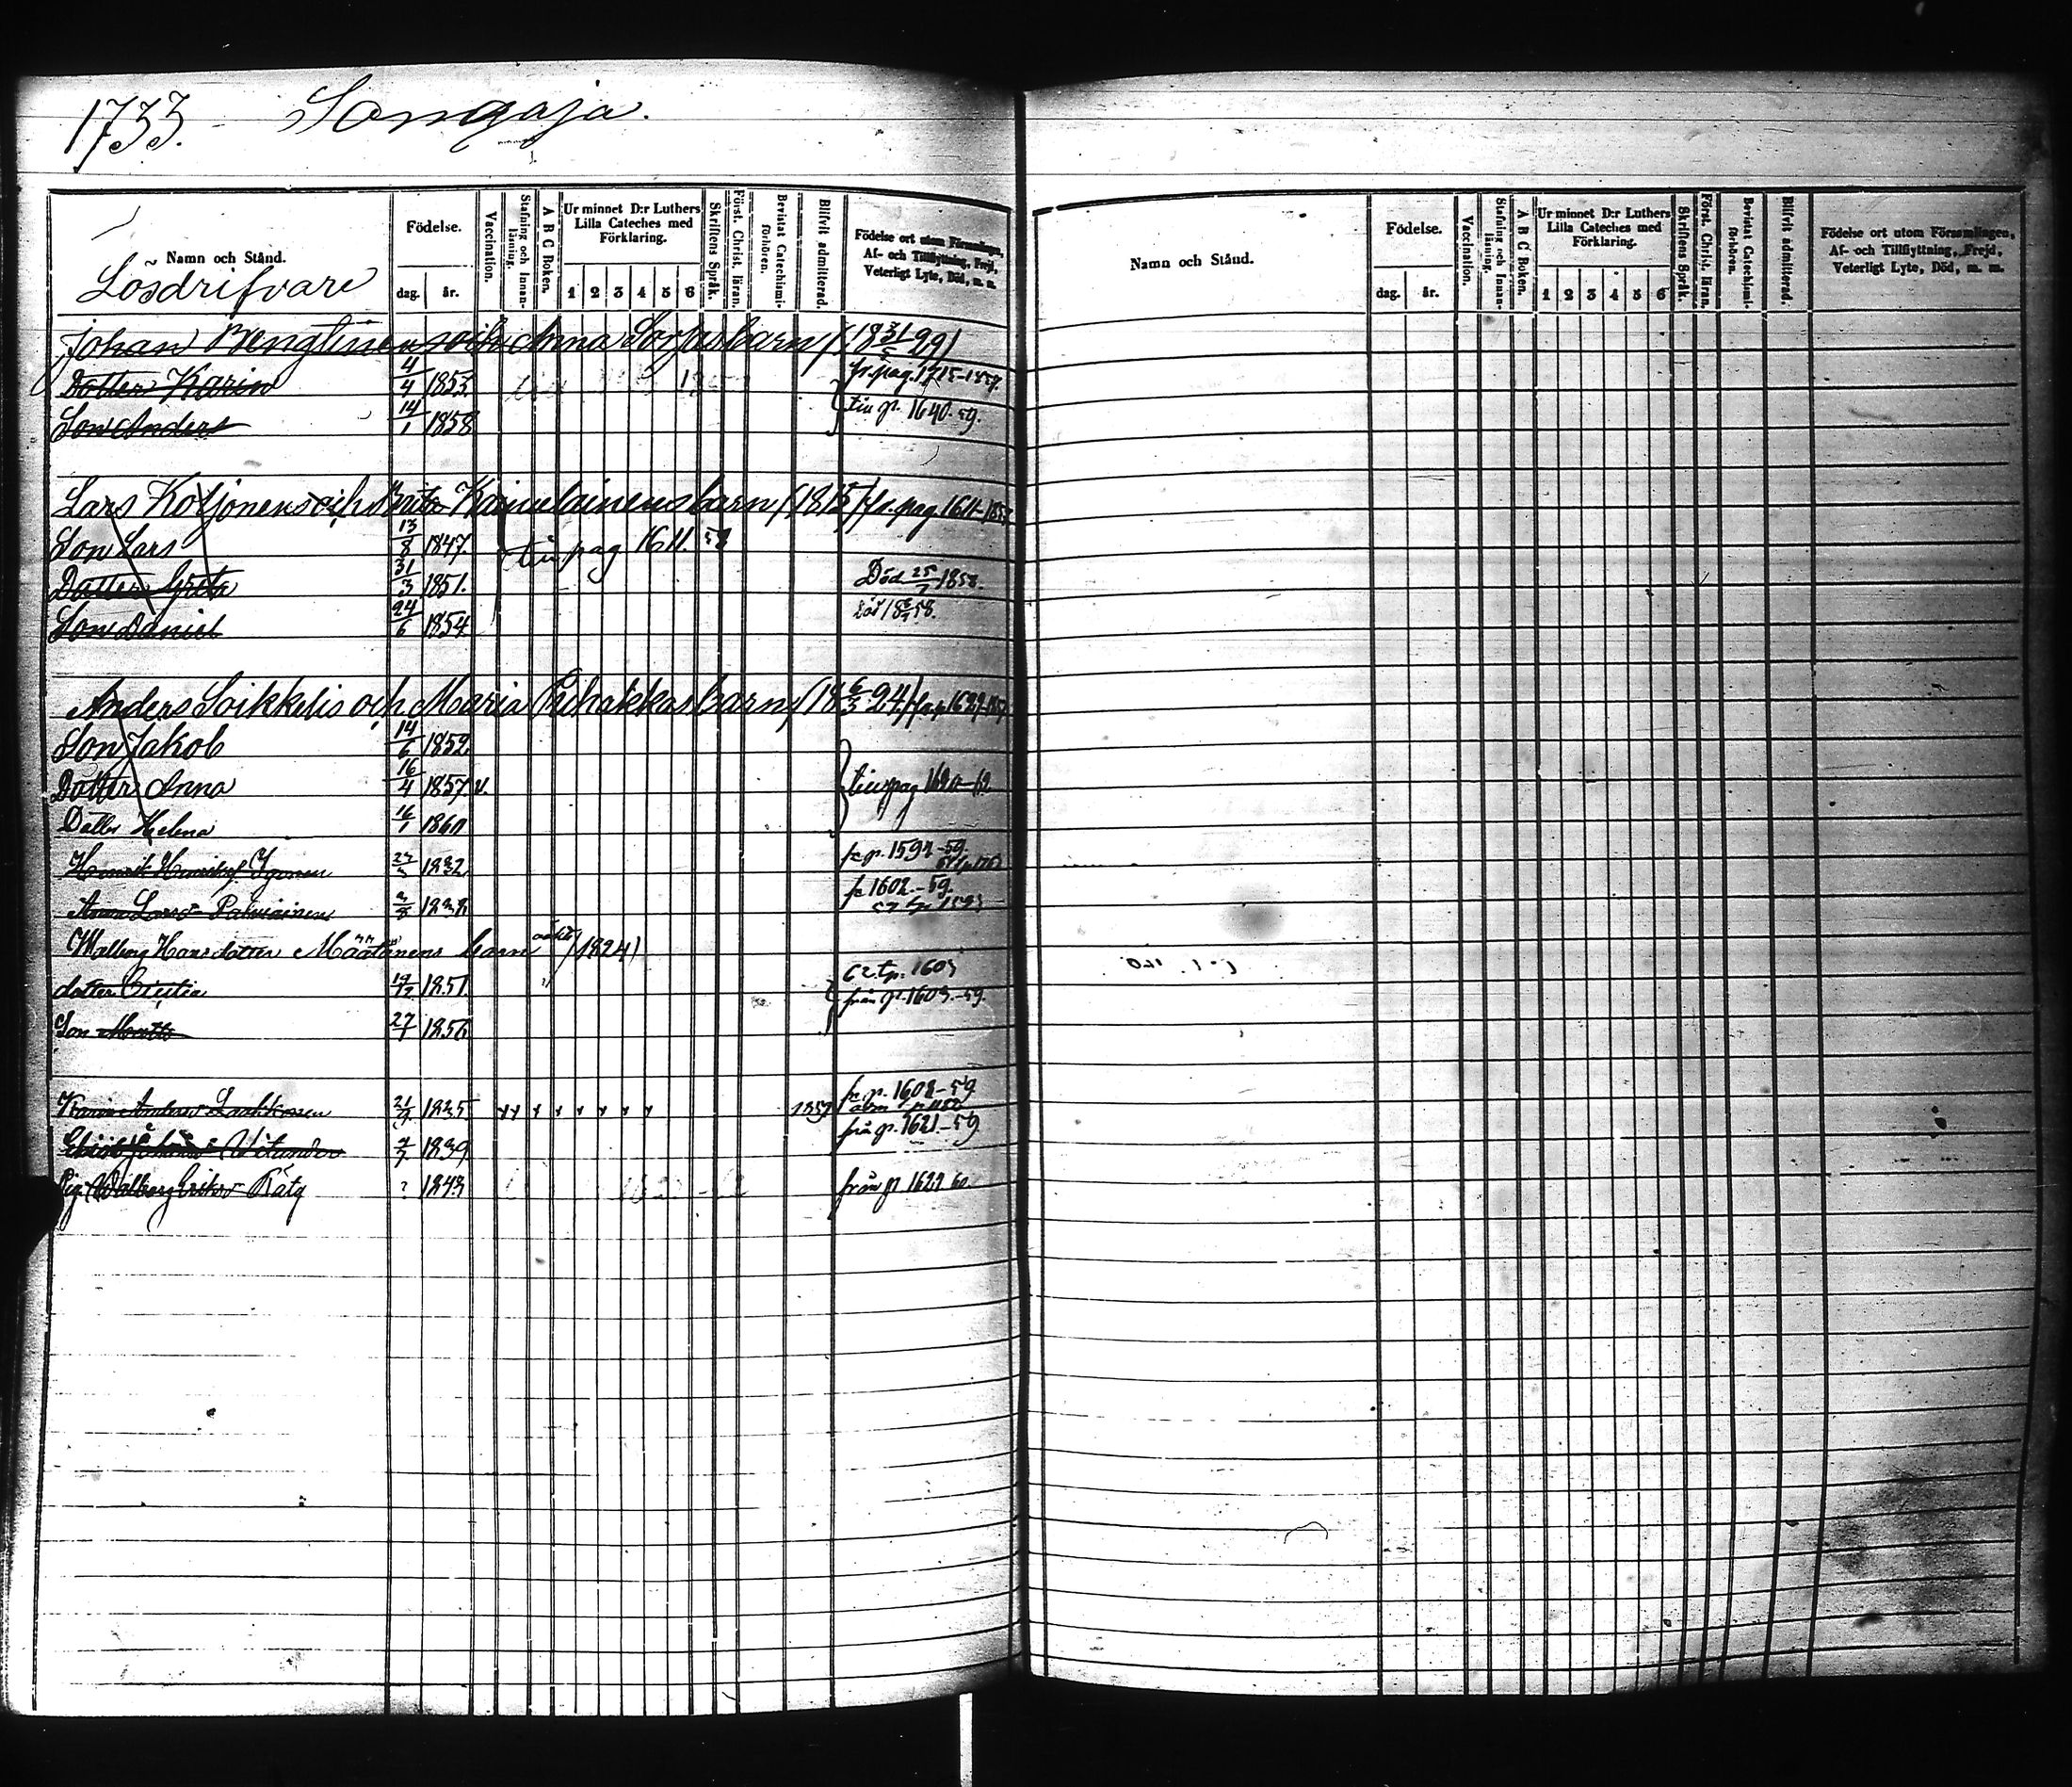 1733. Songaja.
Namn och Stånd.
Lösdrifvare
Födelse.
dag. år.
Vaccination.
Stafning och Innanläsning.
A B C Boken.
Ur minnet D:r Luthers Lilla Cateches med Förklaring.
1 2 3 4 5 6
Skriftens Språk.
Först. Christ. läran.
Bevistat Catechismiförhören.
Blifvit admitterad.
Födelse ort utom Församlingen, Af- och Tillflyttning, Frejd, Veterligt Lyte, Död, m. m.
Johan Bengtinen och Anna barn (18 31/5 29)
Dotter Karin 4/4 1853. fr. pag. 1715-1857
Son Anders 14/1 1858 till p. 1640-59.
Lars Kotjonens och Brita Karmelainens barn (1815) fr. pag. 1611-185
Son Lars 13/8 1847. till pag 1611. 58
Dotter Greta 31/3 1851. Död 25/7 1858.
Son Daniel 24/6 1854 död 18 58.
Anders Soikkelis och Maria Pehakkas barn (18 6/3 24) fr. p. 1629-185
Son Jakob 14/6 1852.
Dotter Anna 16/4 1857 v. till pag 1620-62
Dotter Helena 16/1 1860
Henrik Henriksf. Igonen 1832 fr p. 1594-59.
Anna Larsd. Pakkainen 1838 fr 1602-59.
Walborg Hansdotter Määtänens barn oäkta (1824)
dotter Cristia 1851. " 62 tp. 1603
från p. 1603-59.
Son Matts 27/1 1856
Karin Andersd. Laakkonen 21/9 1835. 1859 fr p. 1602-59
Johansd. Vitunder 1839 från p. 1621-59
Pig. Walborg Eriksd. Räty ? 1843 från p 1622 60.
Namn och Stånd.
Födelse.
dag. år.
Vaccination.
Stafning och Innanläsning.
A B C Boken.
Ur minnet D:r Luthers Lilla Cateches med Förklaring.
1 2 3 4 5 6
Skriftens Språk.
Först. Christ. läran.
Bevistat Catechismiförhören.
Blifvit admitterad.
Födelse ort utom Församlingen, Af- och Tillflyttning, Frejd, Veterligt Lyte, Död, m. m.